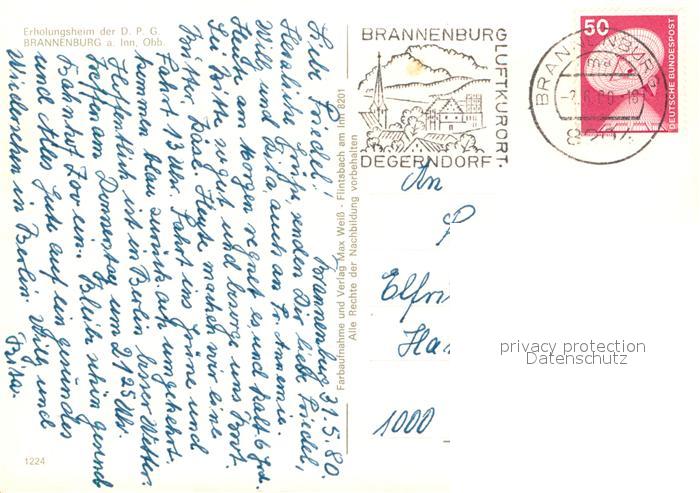 Erholungsheim der D. P. G.
BRANNENBURG a. Inn, Obb.
Brannenburg 31.5.80.
Liebe Friedel!
Herzliche Grüße, senden Dir liebe Friedel,
Willy und Frisa, auch an Fr. Annemie.
Heute am Morgen regnet es, und kalt 6 Grd.
Sei Bitte so gut und besorge uns Brot.
Butter, Heute machen wir eine
Fahrt 3 Uhr. Fahrt ins Grüne und
kommen blau zurück, auch umgekehrt.
Hoffentlich ist in Berlin besser Wetter.
Treffen ein, Donnerstag um 21 25 Uhr.
Bahnhof Zoo ein. Bleibe schön gesund
und Alles Gute auf ein gesundes
Wiedersehen in Berlin. Willy und
Frisa.
1224
Farbaufnahme und Verlag Max Weiß - Flintsbach am Inn 8201
Alle Rechte der Nachbildung vorbehalten
BRANNENBURG
LUFTKURORT.
DEGERNDORF.
BRANNENBURG
50
DEUTSCHE BUNDESPOST
An
Elfri
Ha
1000
privacy protection
Datenschutz